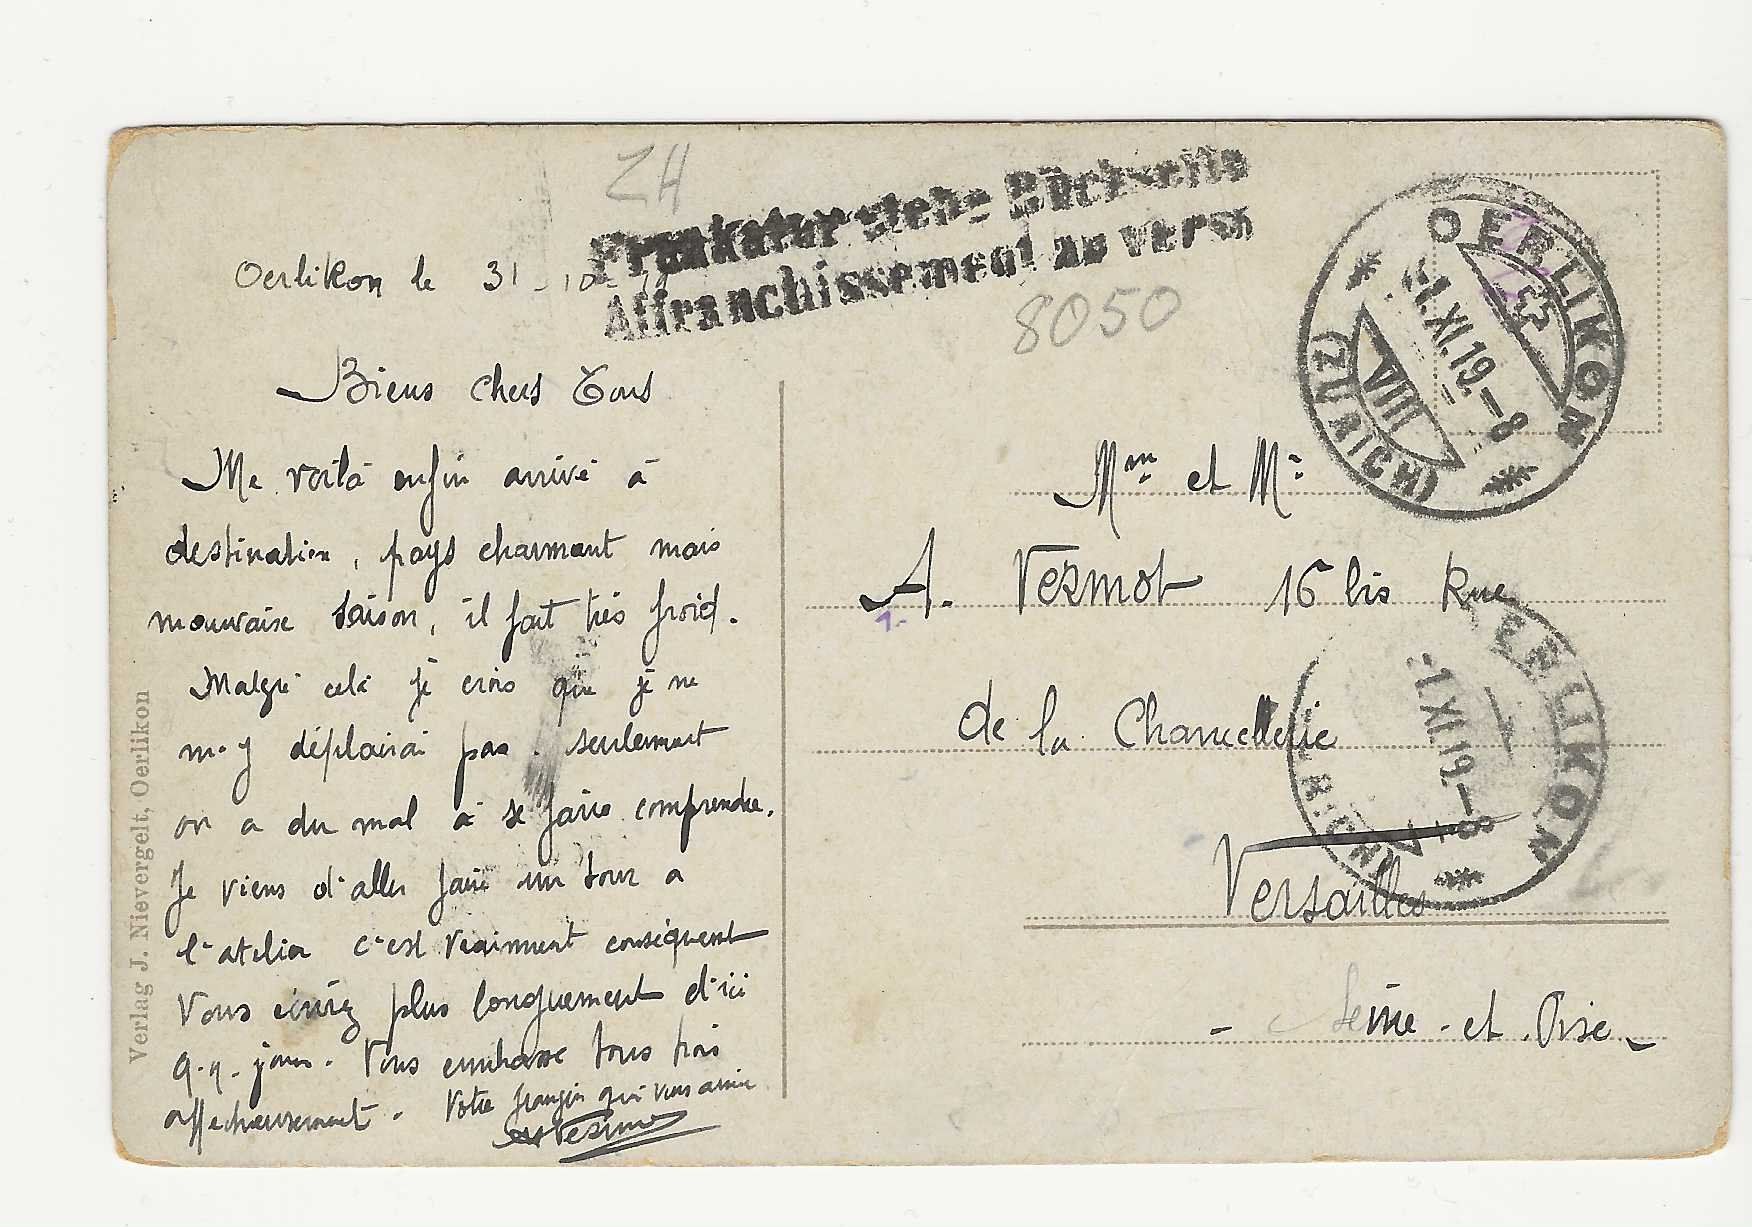 ZH
Frankatur siehe Rückseite
Affranchissement au verso
8050
OERLIKON
-1.XI.19.-8
VIII
(ZÜRICH)
Oerlikon le 31-10-19
Biens chers Tous
Me voilà enfin arrivé à
destination, pays charmant mais
mauvaise saison, il fait très froid.
Malgré cela je crois que je ne
m'y déplairai pas. seulement
on a du mal à se faire comprendre.
Je viens d'aller faire un tour a
l'atelier c'est vraiment conséquent
Vous écrirez plus longuement d'ici
q.q. jours. Vous embrasse tous trois
affectueusement. Votre frangin qui vous aime
Vermot
Verlag J. Nievergelt, Oerlikon
Mme et Mr
A. Vermot 16 bis Rue
de la Chancellerie
Versailles
- Seine-et-Oise -
OERLIKON
-1.XI.19.-8
(ZÜRICH)